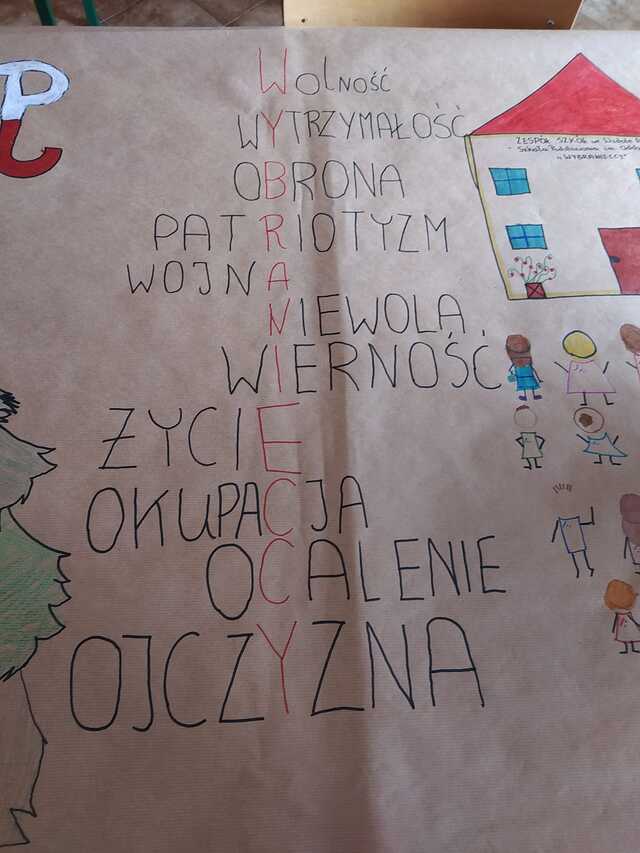 Wolność
WYTRZYMAŁOŚĆ
OBRONA
PATRIOTYZM
WOJNA
NIEWOLA
WIERNOŚĆ
ŻYCIE
OKUPACJA
OCALENIE
OJCZYZNA
ZESPÓŁ SZKÓŁ w
- Szkoła Podstawowa im.
"WYBRANIECCY"